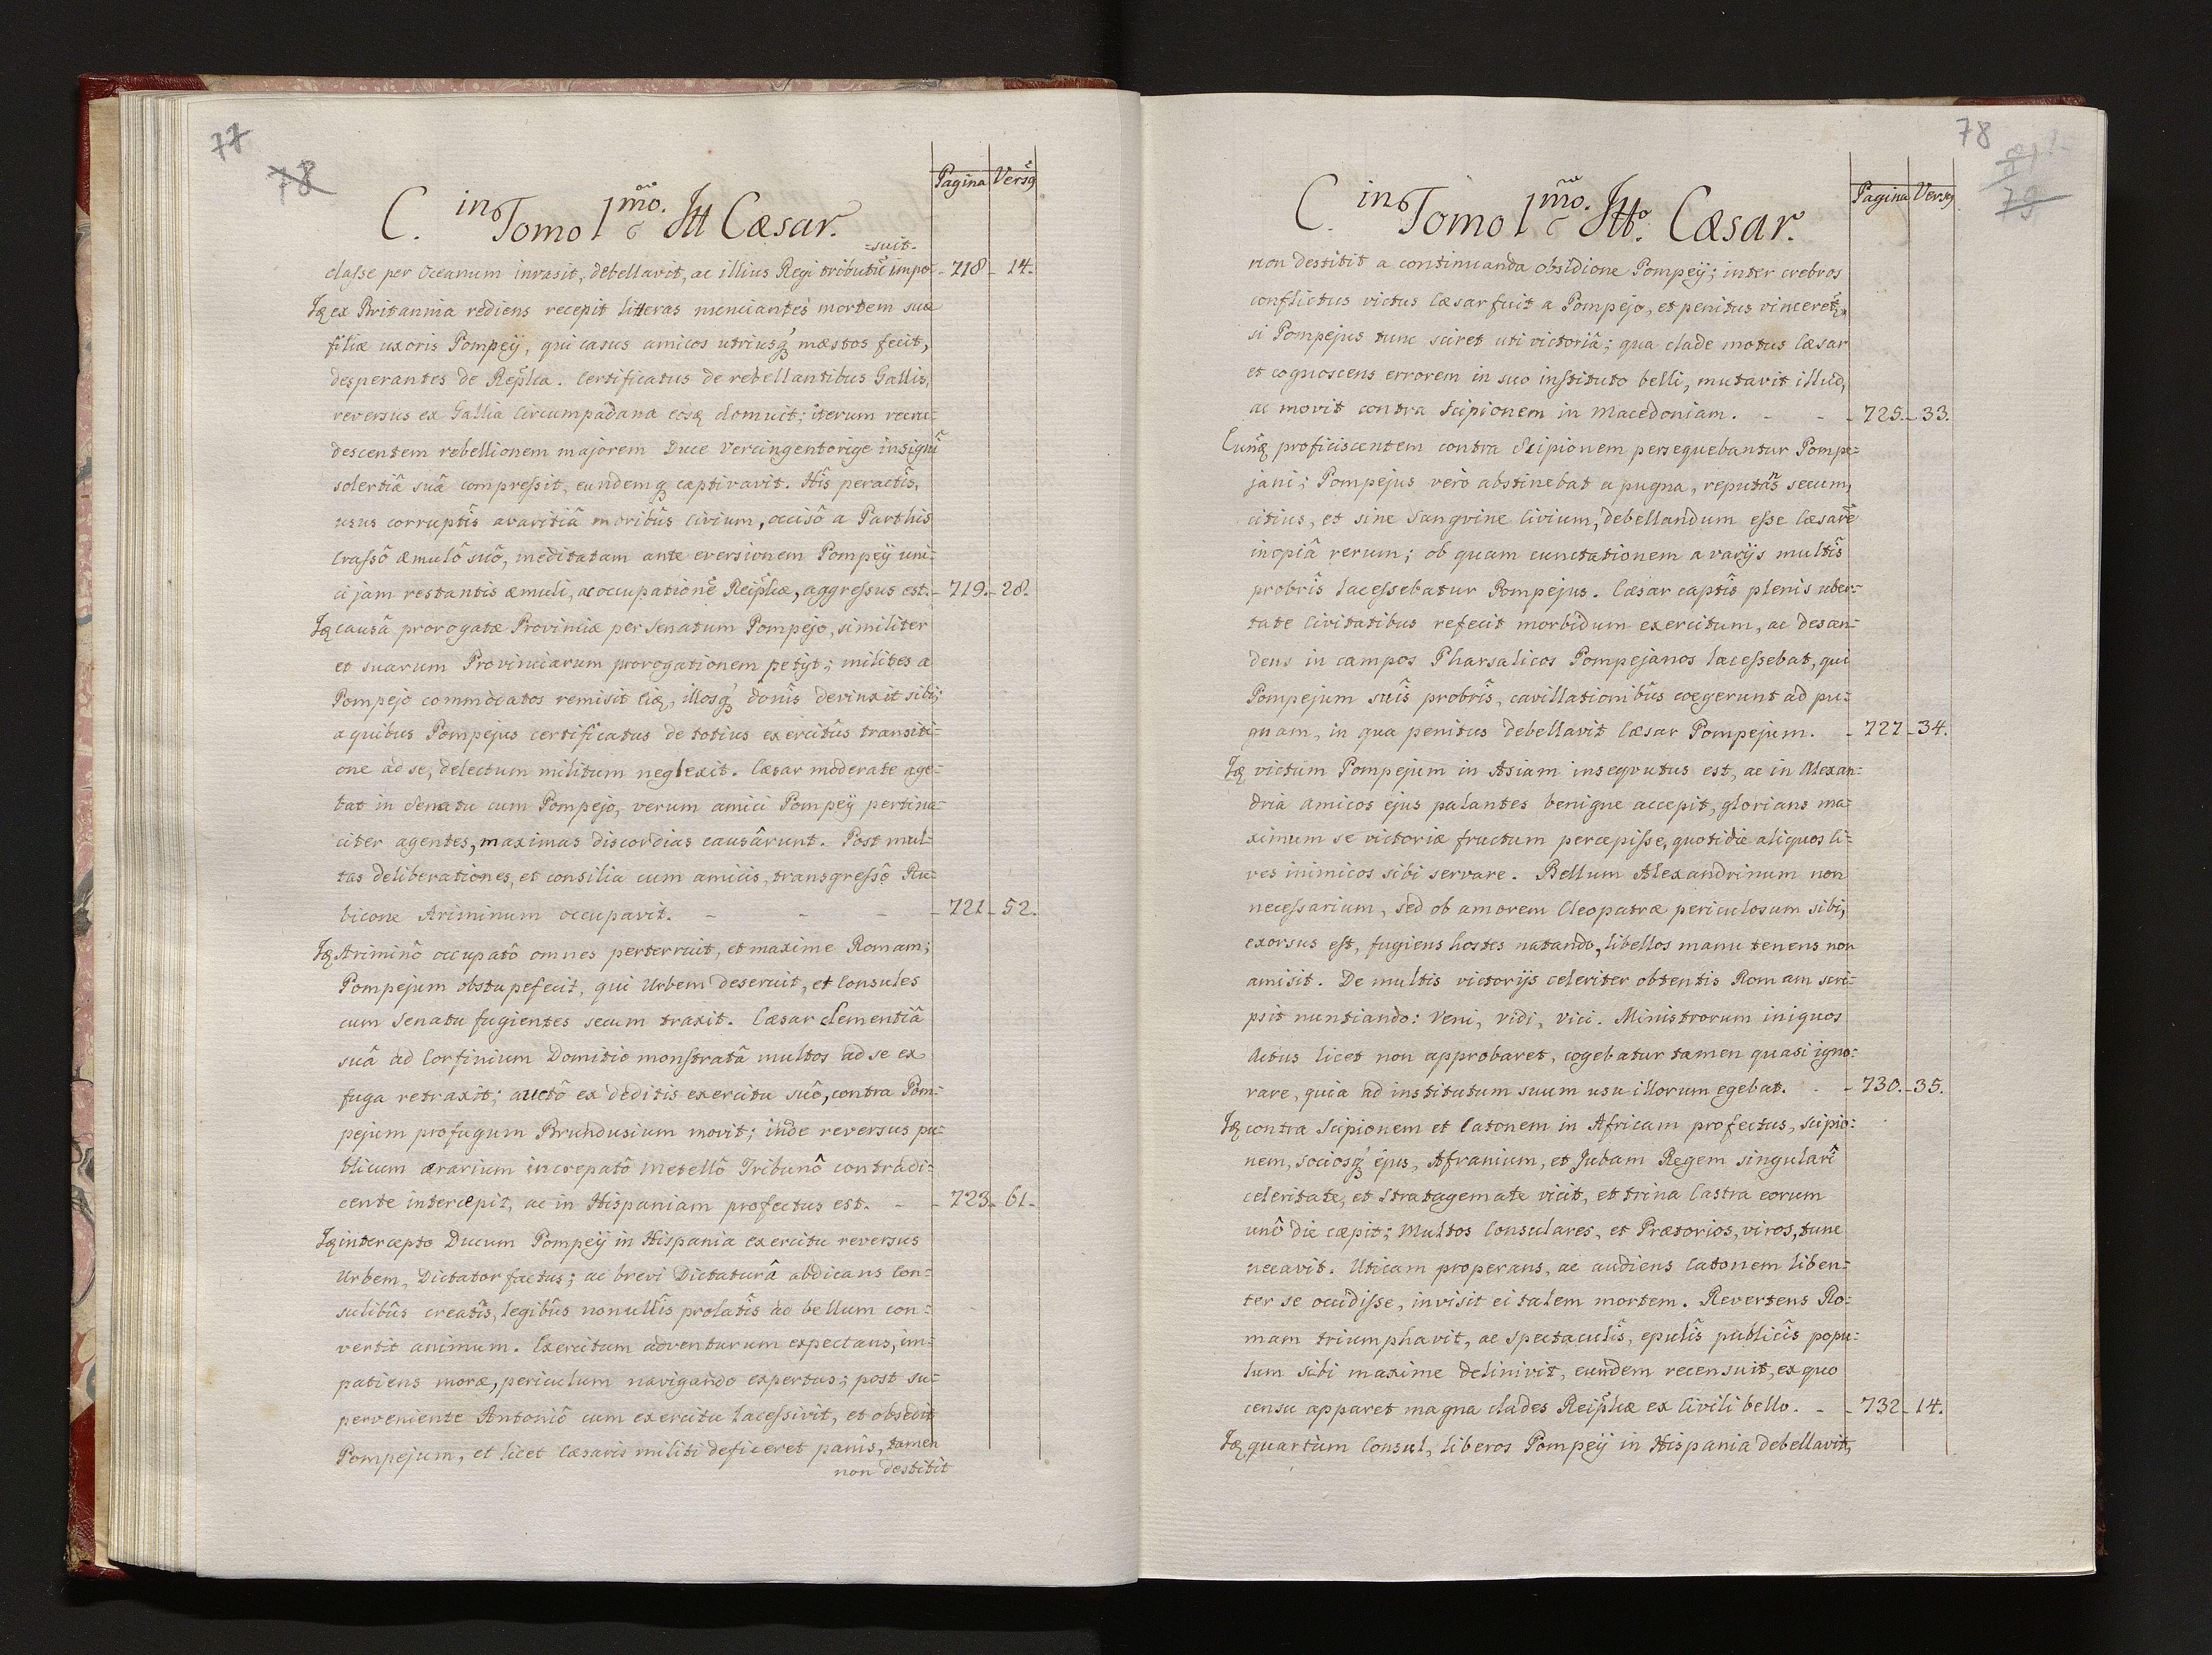 77
78
Pagina Versq
C. in Tomo 1mo. Jtt Cæsar.
=suit.
classe per Oceanum invasit, debellavit, ac illius Regi tributũ impo= 718 14.
Jtq ex Britannia rediens recepit litteras nunciantes mortem suæ
filiæ uxoris Pompeÿ, qui casus amicos utriusq́ mæstos fecit,
desperantes de Repl̃ica. Certificatus de rebellantibus Gallis,
reversus ex Gallia Circumpadana eosq domuit; iterum recru=
descentem rebellionem majorem Duce Vercingentorige insignî
solertiâ suâ compressit, eundemq captivavit. Hîs peractîs,
usus corruptîs avaritiâ moribûs Civium, occisô a Parthis
Crassô æmulô suô, meditatam ante eversionem Pompeÿ uni=
ci jam restantis æmuli, ac occupationẽ Reipl̃icæ, aggressus est. 719. 28.
Jtq causâ prorogatæ Provinciæ per Senatum Pompejo, similiter
et suarum Provinciarum prorogationem petijt; milites a
Pompejo commodatos remisit eiq, illosq́ donîs devinxit sibi;
a quibus Pompejus certificatus de totius exercitûs transiti=
one ad se, delectum militum neglexit. Cæsar moderate age=
bat in Senatu cum Pompejo, verum amici Pompeÿ pertina=
citer agentes, maximas discordias causârunt. Post mul=
tas deliberationes, et consilia cum amicis, transgressô Ru=
bicone Ariminum occupavit. - - - 721. 52.
Jtq Ariminô occupatô omnes perterruit, et maxime Romam;
Pompejum obstupefecit, qui Urbem deseruit, et Consules
cum Senatu fugientes secum traxit. Cæsar clementiâ
suâ ad Corfinium Domitio monstratâ multos ad se ex
fuga retraxit; auctô ex deditis exercitu suô, contra Pom=
pejum profugum Brundusium movit; inde reversus pu=
blicum ærarium increpatô Metellô Tribunô contradi=
cente intercepit, ac in Hispaniam profectus est. - - 723. 61.
Jtq intercepto Ducum Pompeÿ in Hispania exercitu reversus
Urbem, Dictator factus; ac brevi Dictaturâ abdicans Con=
sulibûs creatîs, legibûs nonullîs prolatîs ad bellum con=
vertit animum. Exercitum adventurum expectans, im=
patiens moræ, periculum navigando expertus; post su=
perveniente Antoniô cum exercitu lacessivit, et obsedit
Pompejum, et licet Cæsaris militi deficeret panis, tamen
non destitit
78
79
Pagina Versq
C. in Tomo 1mo. Jtto. Cæsar.
non destitit a continuanda obsidione Pompeÿ; inter crebros
conflictus victus Cæsar fuit a Pompejo, et penitus vinceretur,
si Pompejus tunc sciret uti victoriâ; qua clade motus Cæsar
et cognoscens errorem in suo instituto belli, mutavit illud,
ac movit contra Scipionem in Macedoniam. - - 725. 33.
Cunq́ proficiscentem contra Scipionem persequebantur Pompe=
jani; Pompejus verò abstinebat a pugna, reputans secum,
citius, et sine Sangvine Civium, debellandum esse Cæsarẽ
inopiâ rerum; ob quam cunctationem a varijs multîs
probrîs lacessebatur Pompejus. Cæsar captîs plenis uber=
tate Civitatibus refecit morbidum exercitum, ac desan=
dens in campos Pharsalicos Pompejanos lacessebat, qui
Pompejum suîs probrîs, cavillationibûs coegerunt ad pu=
gnam, in qua penitus debellavit Cæsar Pompejum. - 727. 34.
Jtq victum Pompejum in Asiam inseqvutus est, ac in Alexan=
dria amicos ejus palantes benigne accepit, glorians ma=
ximum se victoriæ fructum percæpisse, quotidie aliquos ci=
ves inimicos sibi servare. Bellum Alexandrinum non
necessarium, sed ob amorem Cleopatræ periculosum sibi,
exorsus est, fugiens hostes natando, libellos manu tenens non
amisit. De multis victorijs celeriter obtentis Romam scri=
psit nuntiando: Veni, vidi, vici. Ministrorum iniquos
Actus licet non approbaret, cogebatur tamen quasi igno=
rare, quia ad institutum suum usu illorum egebat. - - 730. 35.
Jtq contra Scipionem et Catonem in Africam profectus, Scipio=
nem, sociosq́ ejus, Afranium, et Jubam Regem singularî
celeritate, et Stratagemate vicit, et trina Castra eorum
unô die cæpit; Multos Consulares, et Prætorios, viros, tunc
necavit. Uticam properans, ac audiens Catonem liben=
ter se occidisse, invisit ei talem mortem. Revertens Ro=
mam triumphavit, ac spectaculîs, epulîs publicîs popu=
lum sibi maxime delinivit, eundem recensuit, ex quo
censu apparet magna clades Reipl̃icæ ex Civili bello. - - 732. 14.
Jtq quartùm Consul, liberos Pompeÿ in Hispania debellavit,